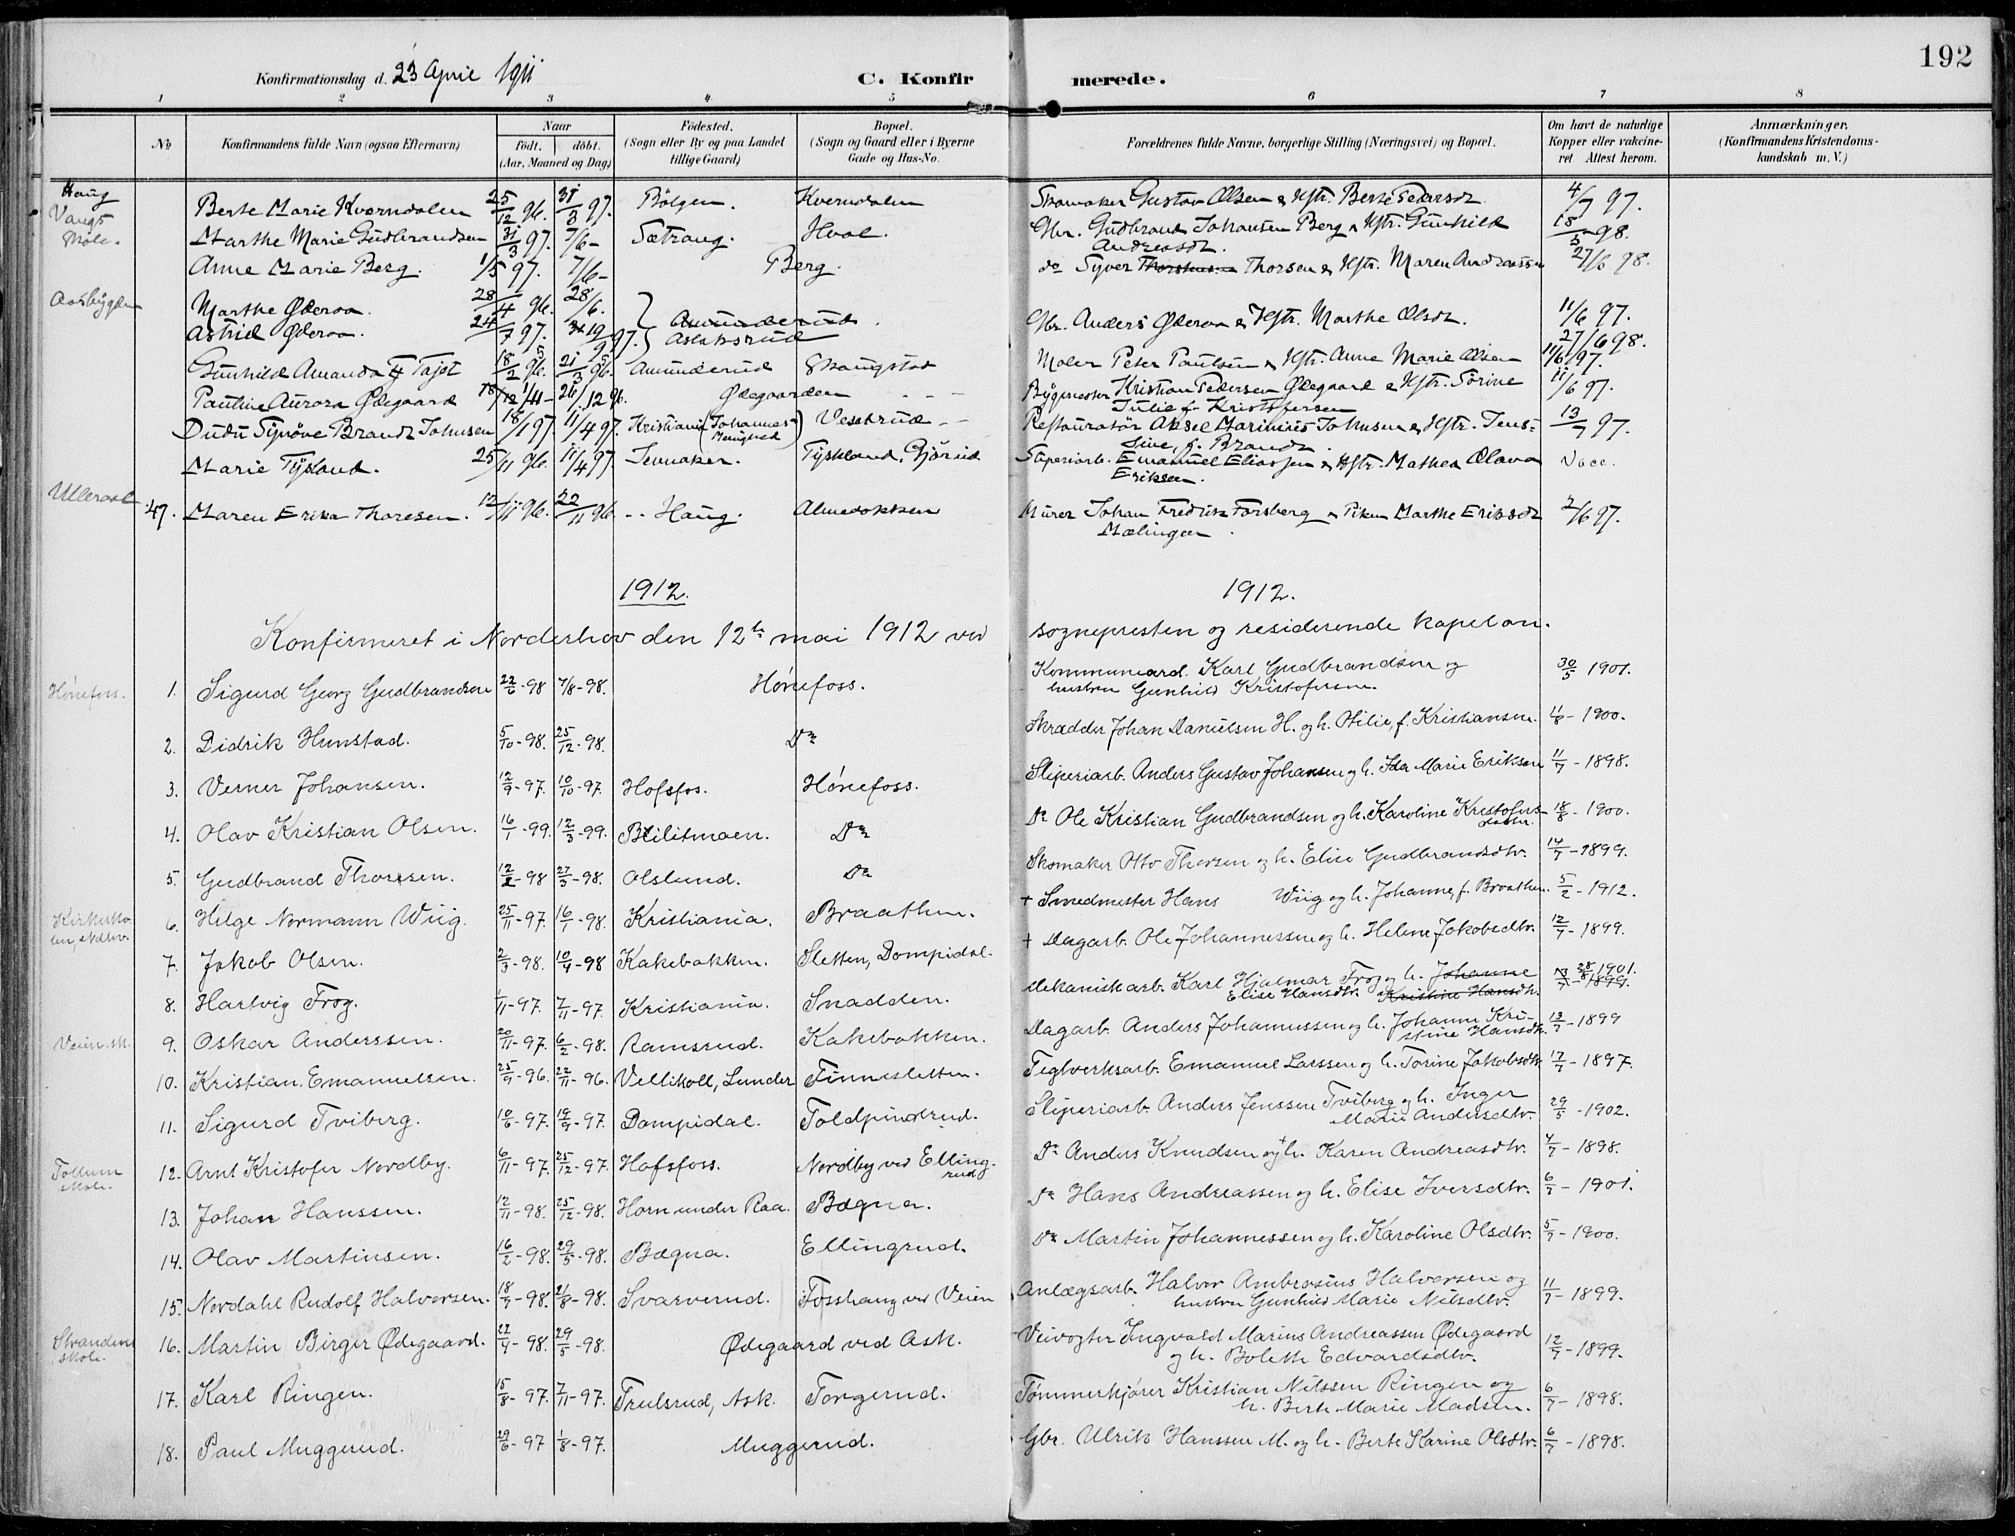 192
Konfirmationsdag d. 23 April 1911 C. Konfirmerede.
1 2 3 4 5 6 7 8
No. Konfirmandens fulde Navn (ogsaa Efternavn) Naar født. døbt. (Aar, Maaned og Dag) Fødested. (Sogn eller By og paa Landet tillige Gaard) Bopæl. (Sogn og Gaard eller i Byerne Gade og Hus-No. Forældrenes fulde Navne, borgerlige Stilling (Næringsvei) og Bopæl. Om havt de naturlige Kopper eller vaccineret Attest herom. Anmærkninger. (Konfirmandens Kristendomskundskab m. V.)
Haug
Berte Marie Kverndalen 25/12 96. 31/3 97. Bølgen. Kverndalen Skomaker Gustav Olsen & Hstr. Berte Pedersdt 4/7 97.
Vangs Skole.
Marthe Marie Gudbrandsen 31/3 97. 7/6 – Sætrang. Hval. Gbr. Gudbrand Johansen Berg & Hstr. Gunhild Andreasdt. 18/5 – 98.
Anne Marie Berg. 1/5 97. 7/6 – Berg. do Syver Thorsen & Hstr. Maren Andreassen 27/6 98.
Aasbygden
Marthe Øderaa. 28/4 96. 28/6. Gbr. Anders Øderaa & Hstr. Marthe Olsdt. 11/6 97.
Astrid Øderaa. 24/7 97. 19/9 97. Aslaksrud 27/6 98.
Gunhild Amanda Tajet 18/2 96. 21/3 96. Amunderud Skaugstad Maler Peter Paulsen & Hstr. Anne Marie Olsen 11/6 97.
Pauline Aurora Ødegaard 26/12 96. Ødegaarden Bygmester Kristian Pedersen Ødegaard & Hstr. Sørine Julie f. Kristofersen 11/6 97.
Dudu Synøve Brandt Johnsen 18/1 97. 11/4 97. Kristiania (Johannes Menighed) Vesterud Restauratør Aksel Marinius Johnsen & Hstr. Jenssine, f. Brandt. 13/7 97.
Marie Tyskland. 25/11 96. 11/4 97 Jevnaker. Tyskland, Gjørud Sliperiarb. Emanuel Eliassen & Hstr. Mathea Olava Eriksen. Vacc.
Ulleraal
47. Maren Erika Thoresen. 12/11 96. 22/11 96 Haug. Almebakken Murer Johan Fredrik Forsberg & Piken Marthe Eriksdt Mælingen. 2/6 97.
1912. 1912.
Konfirmeret i Norderhov den 12te mai 1912 ved sognepresten og residerende kapelan.
Hønefoss. 1. Sigurd Georg Gudbrandsen 22/6 - 98 7/8 - 98. Hønefoss. Kommunearb. Karl Gudbrandsen og hustru Gunhild Kristofersen. 30/5 1901.
2. Didrik Hunstad. 5/10 - 98. 25/12 - 98. Do Skrædder Johan Danielsen H. og h. Otilie, f. Kristiansen. 11/8 - 1900.
3. Verner Johansen. 12/9 - 97. 10/10 - 97. Hofsfos. Hønefoss. Sliperiarb. Anders Gustav Johansen og h. Ida Marie Eriksen 11/7 - 1898.
4. Olav Kristian Olsen. 16/1 - 99. 12/3 - 99. Blilitmoen. Do Do Ole Kristian Gudbrandsen og h. Karoline Kristofersdatter. 18/8 - 1900.
5. Gudbrand Thoresen. 12/2 - 98 27/3 - 98. Olslund. Do Skomaker Otto Thorsen og h. Elise Gudbrandsdtr. 14/7 - 1899.
Kirkeskolen, Ndhv. 6. Helge Normann Wiig. 25/11 - 97. 16/1 - 98. Kristiania. Braathen. + Smedmester Hans Wiig og h. Johanne, f. Braathen. 5/2 - 1912.
7. Jakob Olsen. 2/3 - 98. 10/4 - 98 Kakebakken. Sletten, Dompidal. + Dagarb. Ole Johannessen og h. Helene Jakobsdtr. 12/7 - 1899.
8. Hartvig Frog. 1/11 - 97. 7/11 - 97. Kristiania. Snadden. Mekanisk arb. Karl Hjalmar Frog og h. Johanne Kristine Hansdtr. Elise Hansdtr. 28/8 1901. - 1899.
Veien sk. 9. Oskar Anderssen. 20/11 - 97. 6/2 - 98. Ramsrud. Kakebakken. Dagarb. Anders Johannessen og h. Johanne Kristine Hansdtr. 13/7 - 1899
10. Kristian Emanuelsen. 25/9 - 96. 22/11 - 96. Vellikoll, Lunder Finnesletten. Teglverksarb. Emanuel Larssen og h. Torine Jakobsdtr. 17/7 - 1897.
11. Sigurd Tviberg. 10/6 - 97. 19/9 - 97. Dompidal. Toldpindrud. Sliperiarb. Anders Jenssen Tviberg og h. Inger Marie Andersdtr. 29/5 - 1902.
Tollum skole. 12. Arnt Kristofer Nordby. 6/11 - 97. 25/12 - 97. Hofsfoss. Nordby ved Ellingrud Do Anders Knudsen og + h. Karen Andreasdtr. 4/7 - 1898.
13. Johan Hanssen. 12/11 - 98. 25/12 - 98. Horn under Raa. Bægna. Do Hans Andreassen og h. Elise Iversdtr. 6/7 - 1901.
14. Olav Martinsen. 16/2 - 98. 29/5 - 98. Bægna. Ellingrud. Do Martin Johannessen og h. Karoline Olsdtr. 5/7 - 1900.
15. Nordahl Rudolf Halvorsen. 18/7 - 98. 21/8 - 98. Svarverud. Fosshaug ved Veien Anlægsarb. Halvor Ambrosius Halvorsen og hustru Gunhild Marie Nilsdtr. 11/7 - 1899.
Strandens skole. 16. Martin Birger Ødegaard. 22/4 - 98. 29/5 - 98. Ødegaard ved Ask. Veivogter Ingvald Marius Andreassen Ødegaard og h. Boleth Edvardsdtr. 12/7 - 1899.
17. Karl Ringen. 15/8 - 97. 7/11 - 97. Trulsrud, Ask. Tongerud. Tømmerkjører Kristian Nilssen Ringen og h. Berte Marie Madsen. 6/7 - 1898.
18. Paul Muggerud. 29/6 - 97 1/8 - 97. Muggerud. Gbr. Ulrik Hanssen M. og h. Berte Karine Olsdtr. 6/7 - 1898.